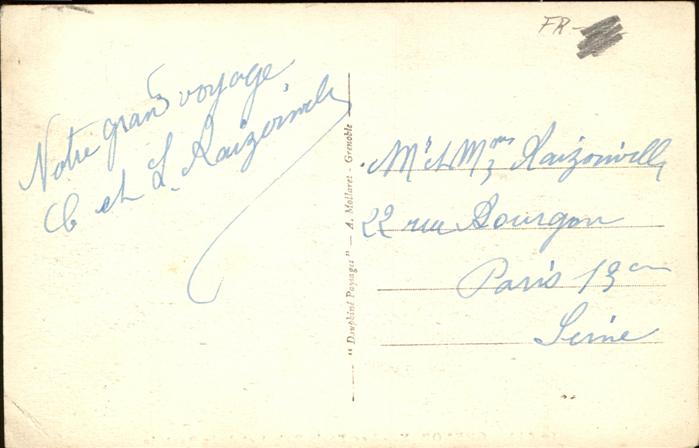 FR-
Notre grand voyage
C et L. Raizonville
"Dauphiné Paysages" — A. Mollaret - Grenoble
Mr et Mme Raizonville
22 rue Bourgon
Paris 13em
Seine